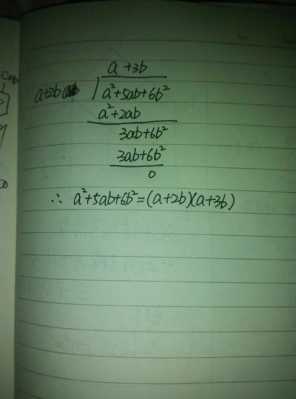 a+3b
a+2b a²+5ab+6b²
a²+2ab
3ab+6b²
3ab+6b²
0
∴ a²+5ab+6b²=(a+2b)(a+3b)